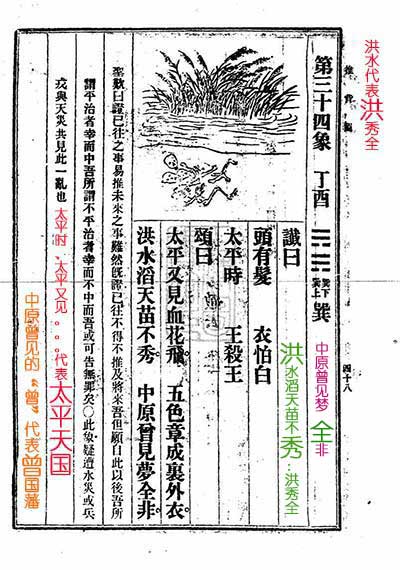 洪水代表洪秀全
推背圖
四十八
第三十四象 丁酉 ䷸ 巽下巽上 巽
中原曾见梦全非
讖曰
頭有髮 衣怕白
太平時 王殺王
洪水滔天苗不秀：洪秀全
頌曰
太平又見血花飛。 五色章成裏外衣。
洪水滔天苗不秀。 中原曾見夢全非。
聖歎曰證已往之事易推未來之事難然既證已往不得不推及將來吾但願自此以後吾所
謂平治者幸而中吾所謂不平治者幸而不中而吾或可告無罪矣〇此象疑遭水災或兵
戎與天災共見此一亂也
太平时、太平又见。。。代表太平天国
中原曾见的“曾”代表曾国藩